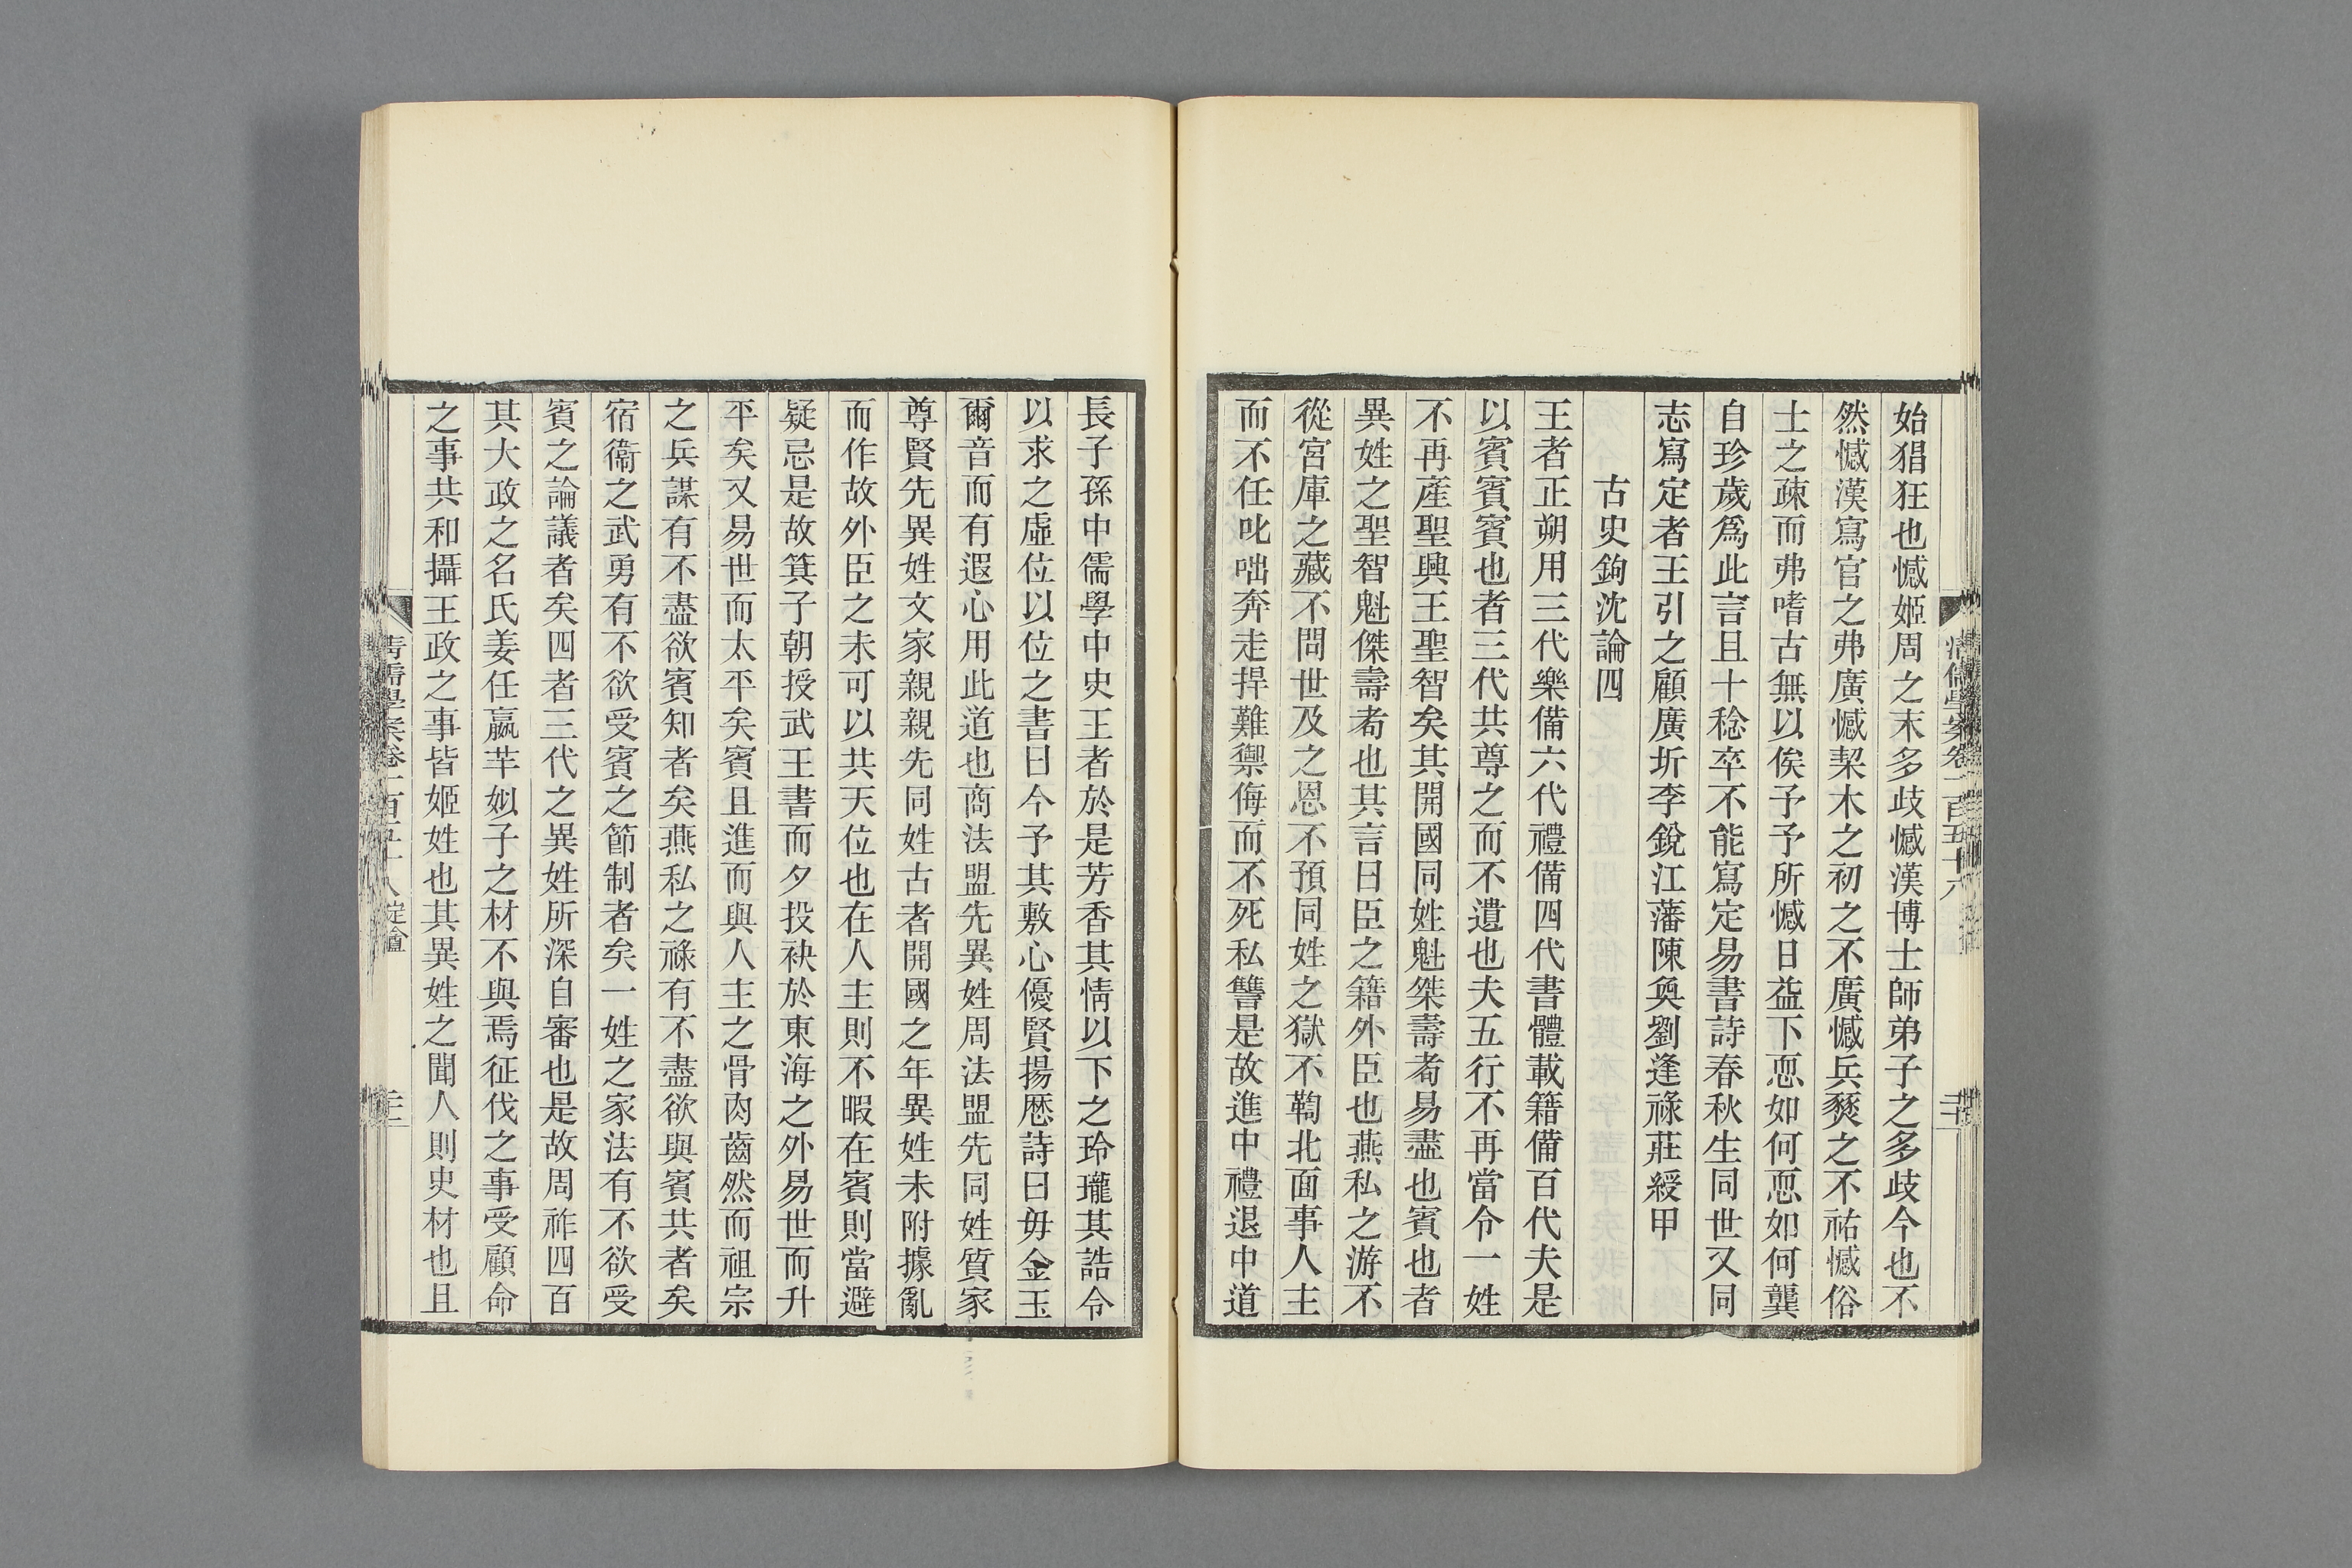 始猖狂也憾姬周之末多歧憾漢博士師弟子之多歧今也不
然憾漢寫官之弗廣憾契木之初之不廣憾兵燹之不祐憾俗
士之疎而弗嗜古無以俟予予所憾日益下恧如何恧如何龔
自珍歲爲此言且十稔卒不能寫定易書詩春秋生同世又同
志寫定者王引之顧廣圻李銳江藩陳奐劉逢祿莊綬甲
古史鉤沈論四
王者正朔用三代樂備六代禮備四代書體載籍備百代夫是
以賓賓賓也者三代共尊之而不遺也夫五行不再當令一姓
不再產聖興王聖智矣其開國同姓魁桀壽耇易盡也賓也者
異姓之聖智魁傑壽耇也其言曰臣之籍外臣也燕私之游不
從宮庫之藏不問世及之恩不預同姓之獄不鞫北面事人主
而不任叱咄奔走捍難禦侮而不死私讐是故進中禮退中道
長子孫中儒學中史王者於是芳香其情以下之玲瓏其誥令
以求之虛位以位之書曰今予其敷心優賢揚歷詩曰毋金玉
爾音而有遐心用此道也商法盟先異姓周法盟先同姓質家
尊賢先異姓文家親親先同姓古者開國之年異姓未附據亂
而作故外臣之未可以共天位也在人主則不暇在賓則當避
疑忌是故箕子朝授武王書而夕投袂於東海之外易世而升
平矣又易世而太平矣賓且進而與人主之骨肉齒然而祖宗
之兵謀有不盡欲賓知者矣燕私之祿有不盡欲與賓共者矣
宿衞之武勇有不欲受賓之節制者矣一姓之家法有不欲受
賓之論議者矣四者三代之異姓所深自審也是故周祚四百
其大政之名氏姜任嬴芈姒子之材不與焉征伐之事受顧命
之事共和攝王政之事皆姬姓也其異姓之聞人則史材也且